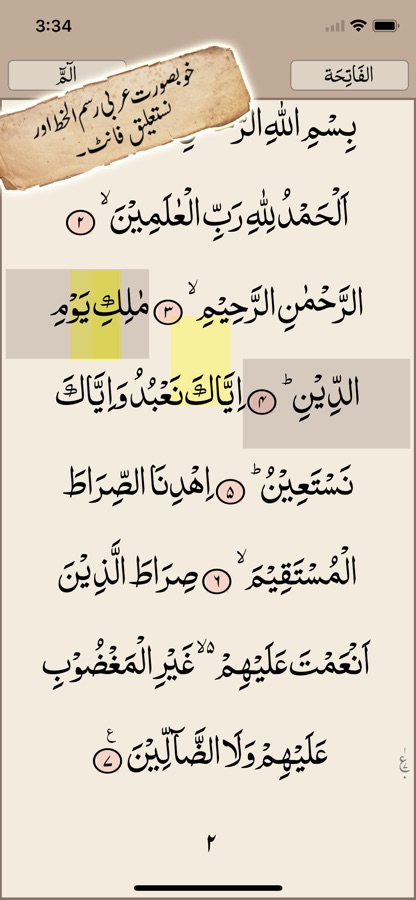 3:34
الٓمّٓ
الفَاتِحَة
خوبصورت عربی رسم الخط اور
نستعلیق فانٹ۔
بِسْمِ اللّٰهِ
اَلْحَمْدُ لِلّٰهِ رَبِّ الْعٰلَمِيْنَ ۙ ۲
الرَّحْمٰنِ الرَّحِيْمِ ۙ ۳ مٰلِكِ يَوْمِ
الدِّيْنِ ؕ ۴ اِيَّاكَ نَعْبُدُ وَاِيَّاكَ
نَسْتَعِيْنُ ؕ ۵ اِهْدِنَا الصِّرَاطَ
الْمُسْتَقِيْمَ ۙ ۶ صِرَاطَ الَّذِيْنَ
اَنْعَمْتَ عَلَيْهِمْ ۙ۵ غَيْرِ الْمَغْضُوْبِ
عَلَيْهِمْ وَلَا الضَّآلِّيْنَ ۷ ع
۲